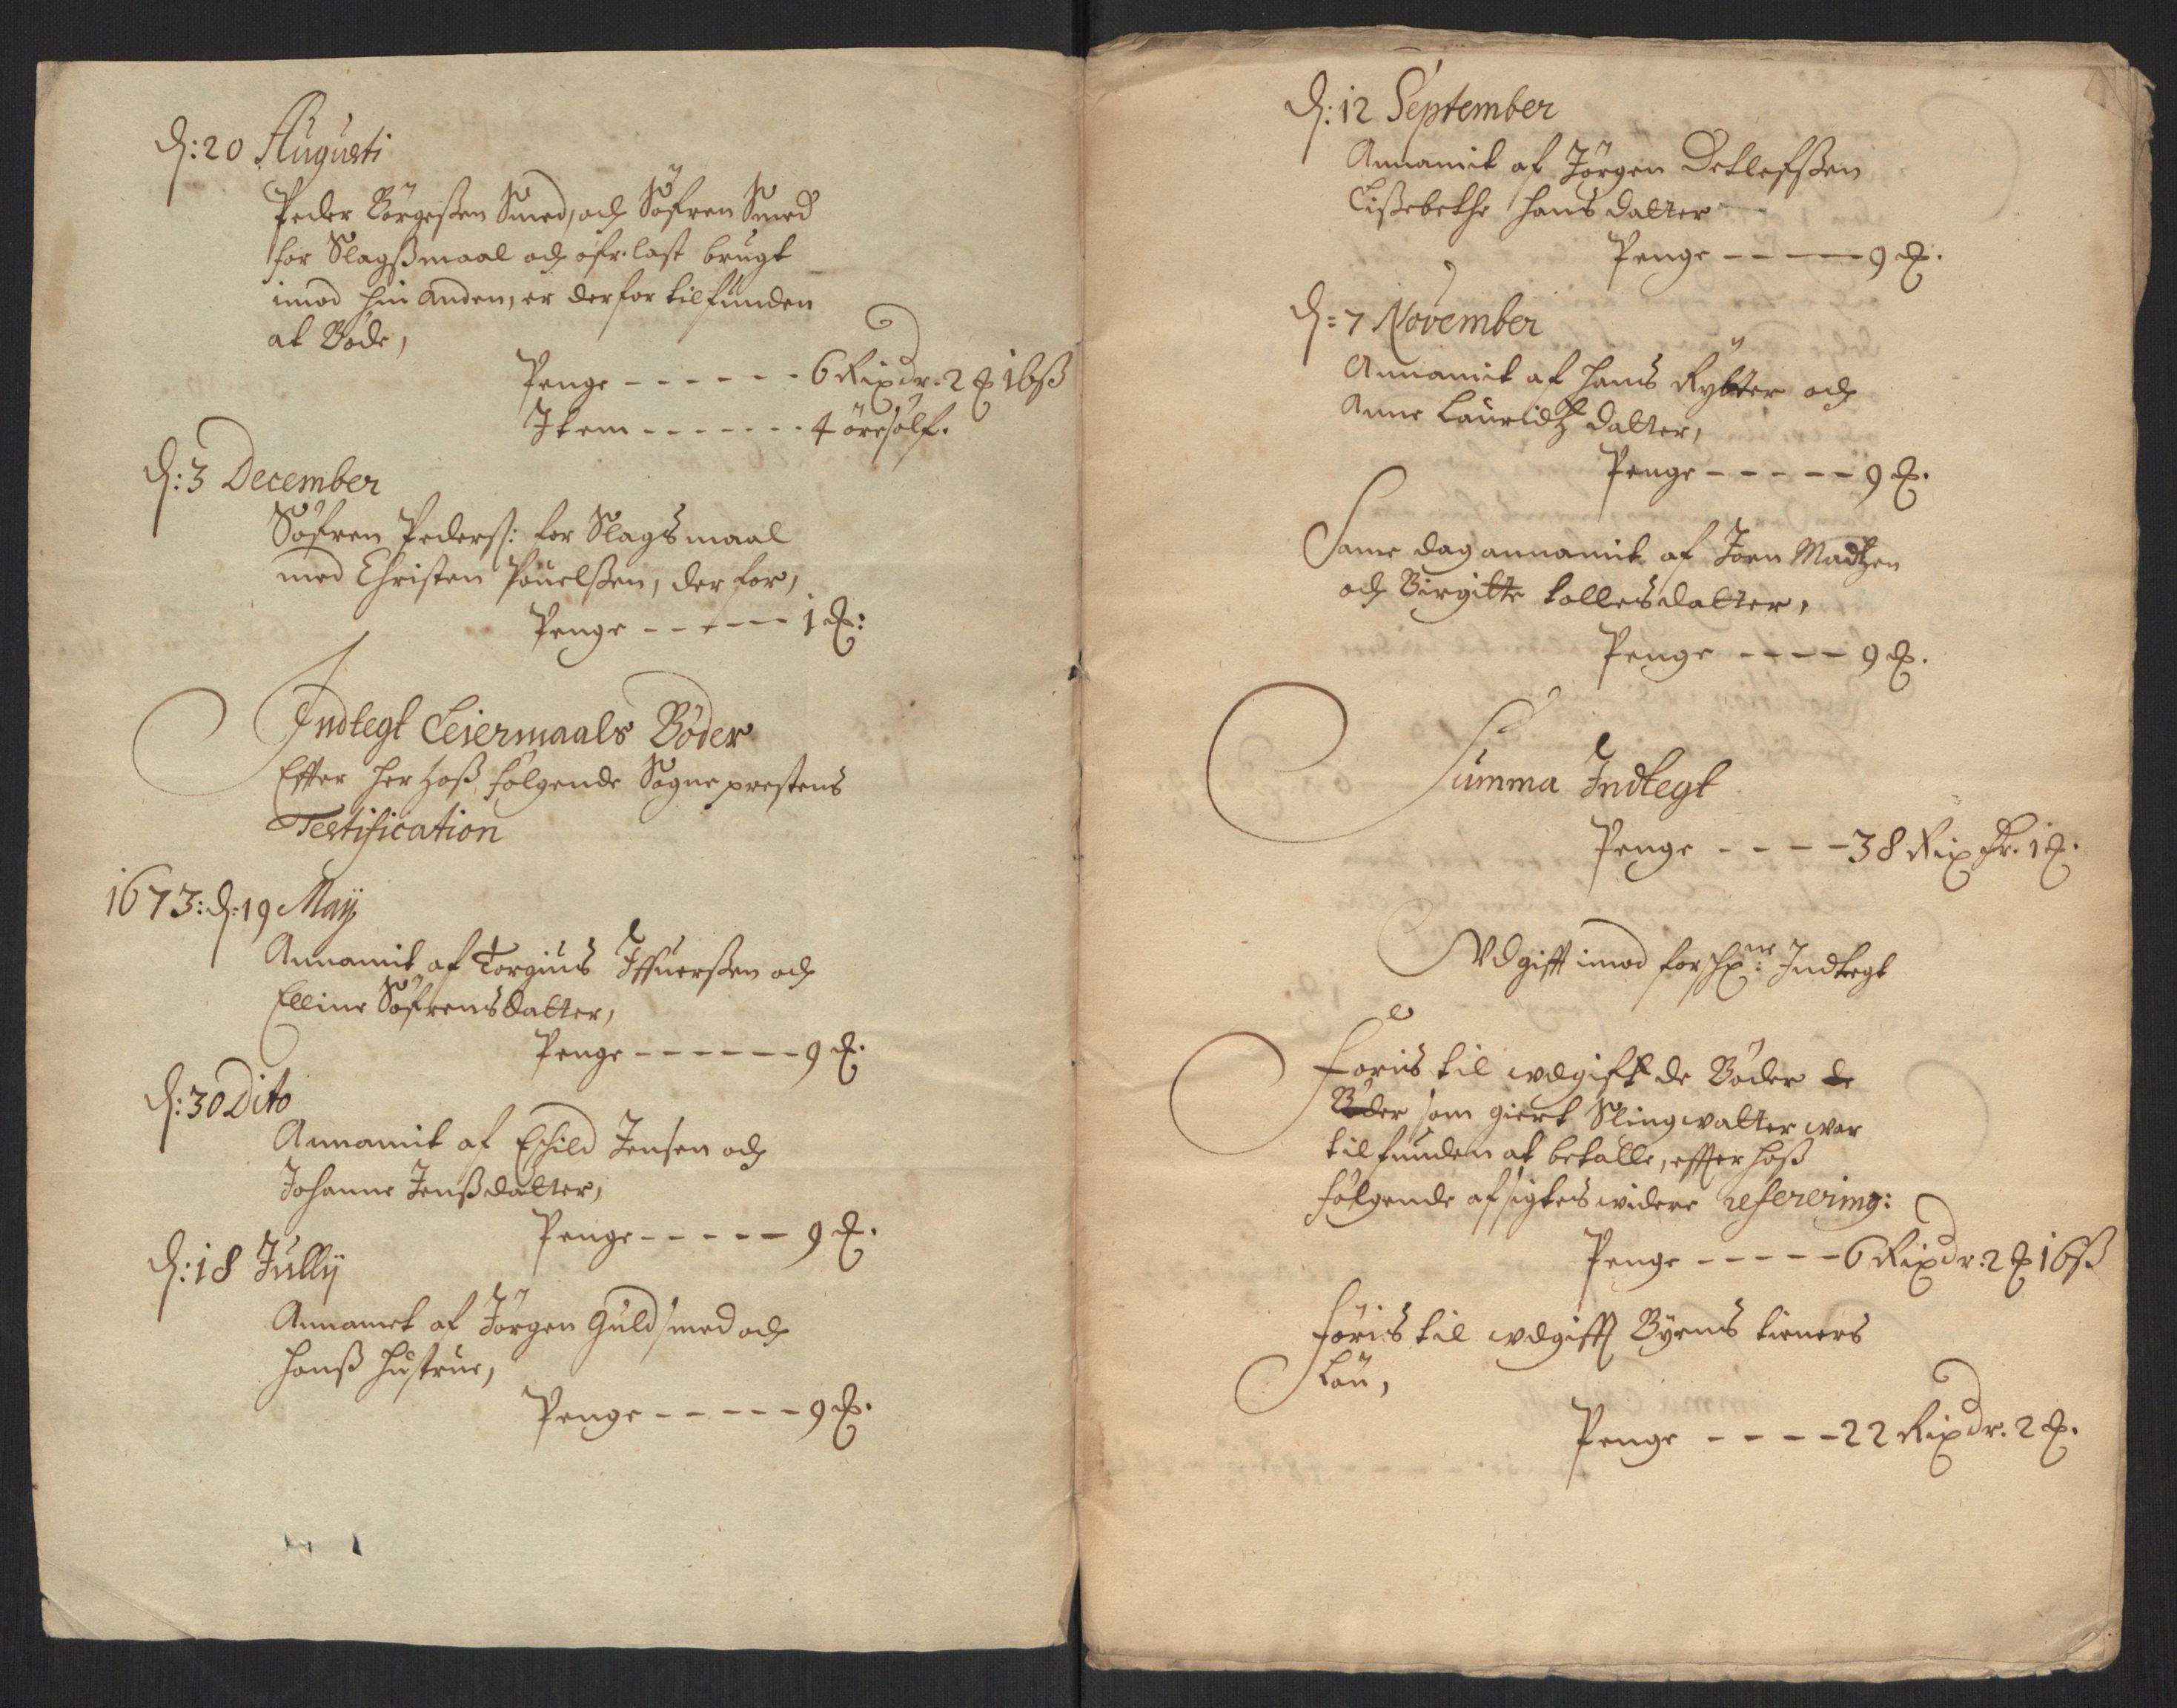 d: 20 Augusti
Peder Børgeßen Smed, och Søfren Smed
for Slagßmaal och ofr. last brugt
imod hin anden, er derfor tilfunden
at Bøde,
Penge - - - - - - 6 Rixdr. 2 ℔ 16 ß
Item - - - - - - - 4 øresølf.
d: 3 December
Søfren Pederß: for Slagsmaal
med Christen Pouelßen, der for,
Penge - - - - - 1 ℔:
Indtegt Leiermaals Bøder
Effter her hoß følgende Sogne prestens
Testification
1673: d: 19 Maij
Annamit af Torgius Iffuerßen och
Elline Søfrensdatter,
Penge - - - - - - 9 ℔.
d: 30 Dito
Annamit af Eschild Jensen och
Johanne Jenßdatter,
Penge - - - - - 9 ℔.
d: 18 Jullij
Annamet af Jørgen Guldsmed och
hanß hustrue,
Penge - - - - - 9 ℔.
d: 12 September
Annamit af Jørgen Detlefßen
Lißebethe Hans datter
Penge - - - - 9 ℔.
d: 7 November
Annamit af Hans Rytter och
Anne Lauridtz datter,
Penge - - - - - 9 ℔.
Same dag annamit af Jorn Madtzen
och Birgitte tollesdatter,
Penge - - - - 9 ℔.
Summa Indtegt
Penge - - - - 38 Rix dr. 1 ℔.
Vdgifft imod forschr: ne Indtegt
Føris til wdgifft de Bøder de
Bøder som giert Slingwatter war
tilfunden at betalle, effter hoß
følgende afsigtes widere referering:
Penge - - - - - 6 Rixdr: 2 ℔ 16 ß
Føris til wdgifft Byens tieners
Løn,
Penge - - - - 22 Rixdr. 2 ℔.